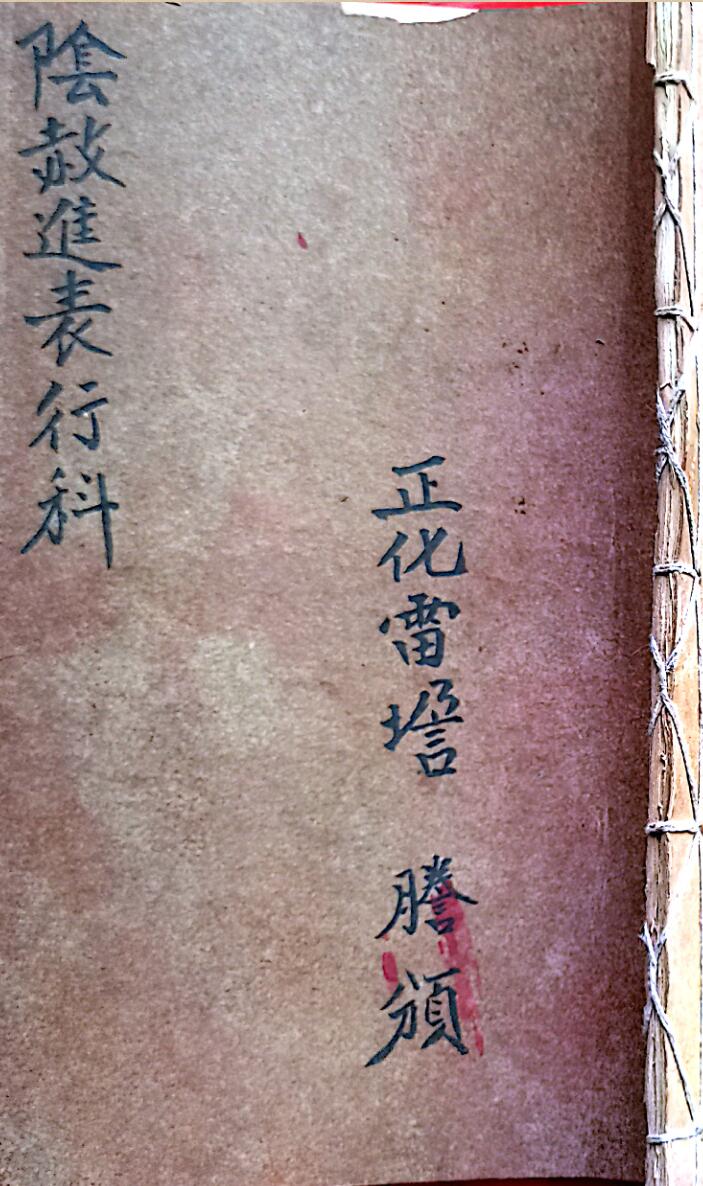 正化雷壇 謄頒
陰赦進表行科